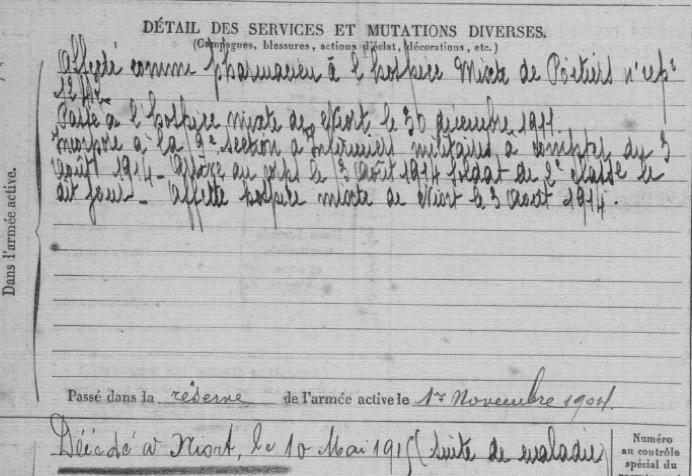 DÉTAIL DES SERVICES ET MUTATIONS DIVERSES.
(Campagnes, blessures, actions d'éclat, décorations, etc.)
Affecté comme pharmacien à l'hospice Mixte de Poitiers n° rep^e
Passé à l'hospice mixte de Niort le 30 décembre 1911.
Incorporé à la 9e section d'infirmiers militaires à compter du 3
Août 1914 - Arrivé au corps le 3 Août 1914 soldat de 2e classe le
dit jour - Affecté hospice mixte de Niort le 3 Août 1914.
Dans l'armée active.
Passé dans la réserve de l'armée active le 1er Novembre 1904
Décédé à Niort, le 10 Mai 1915 (suite de maladie)
Numéro
au contrôle
spécial du